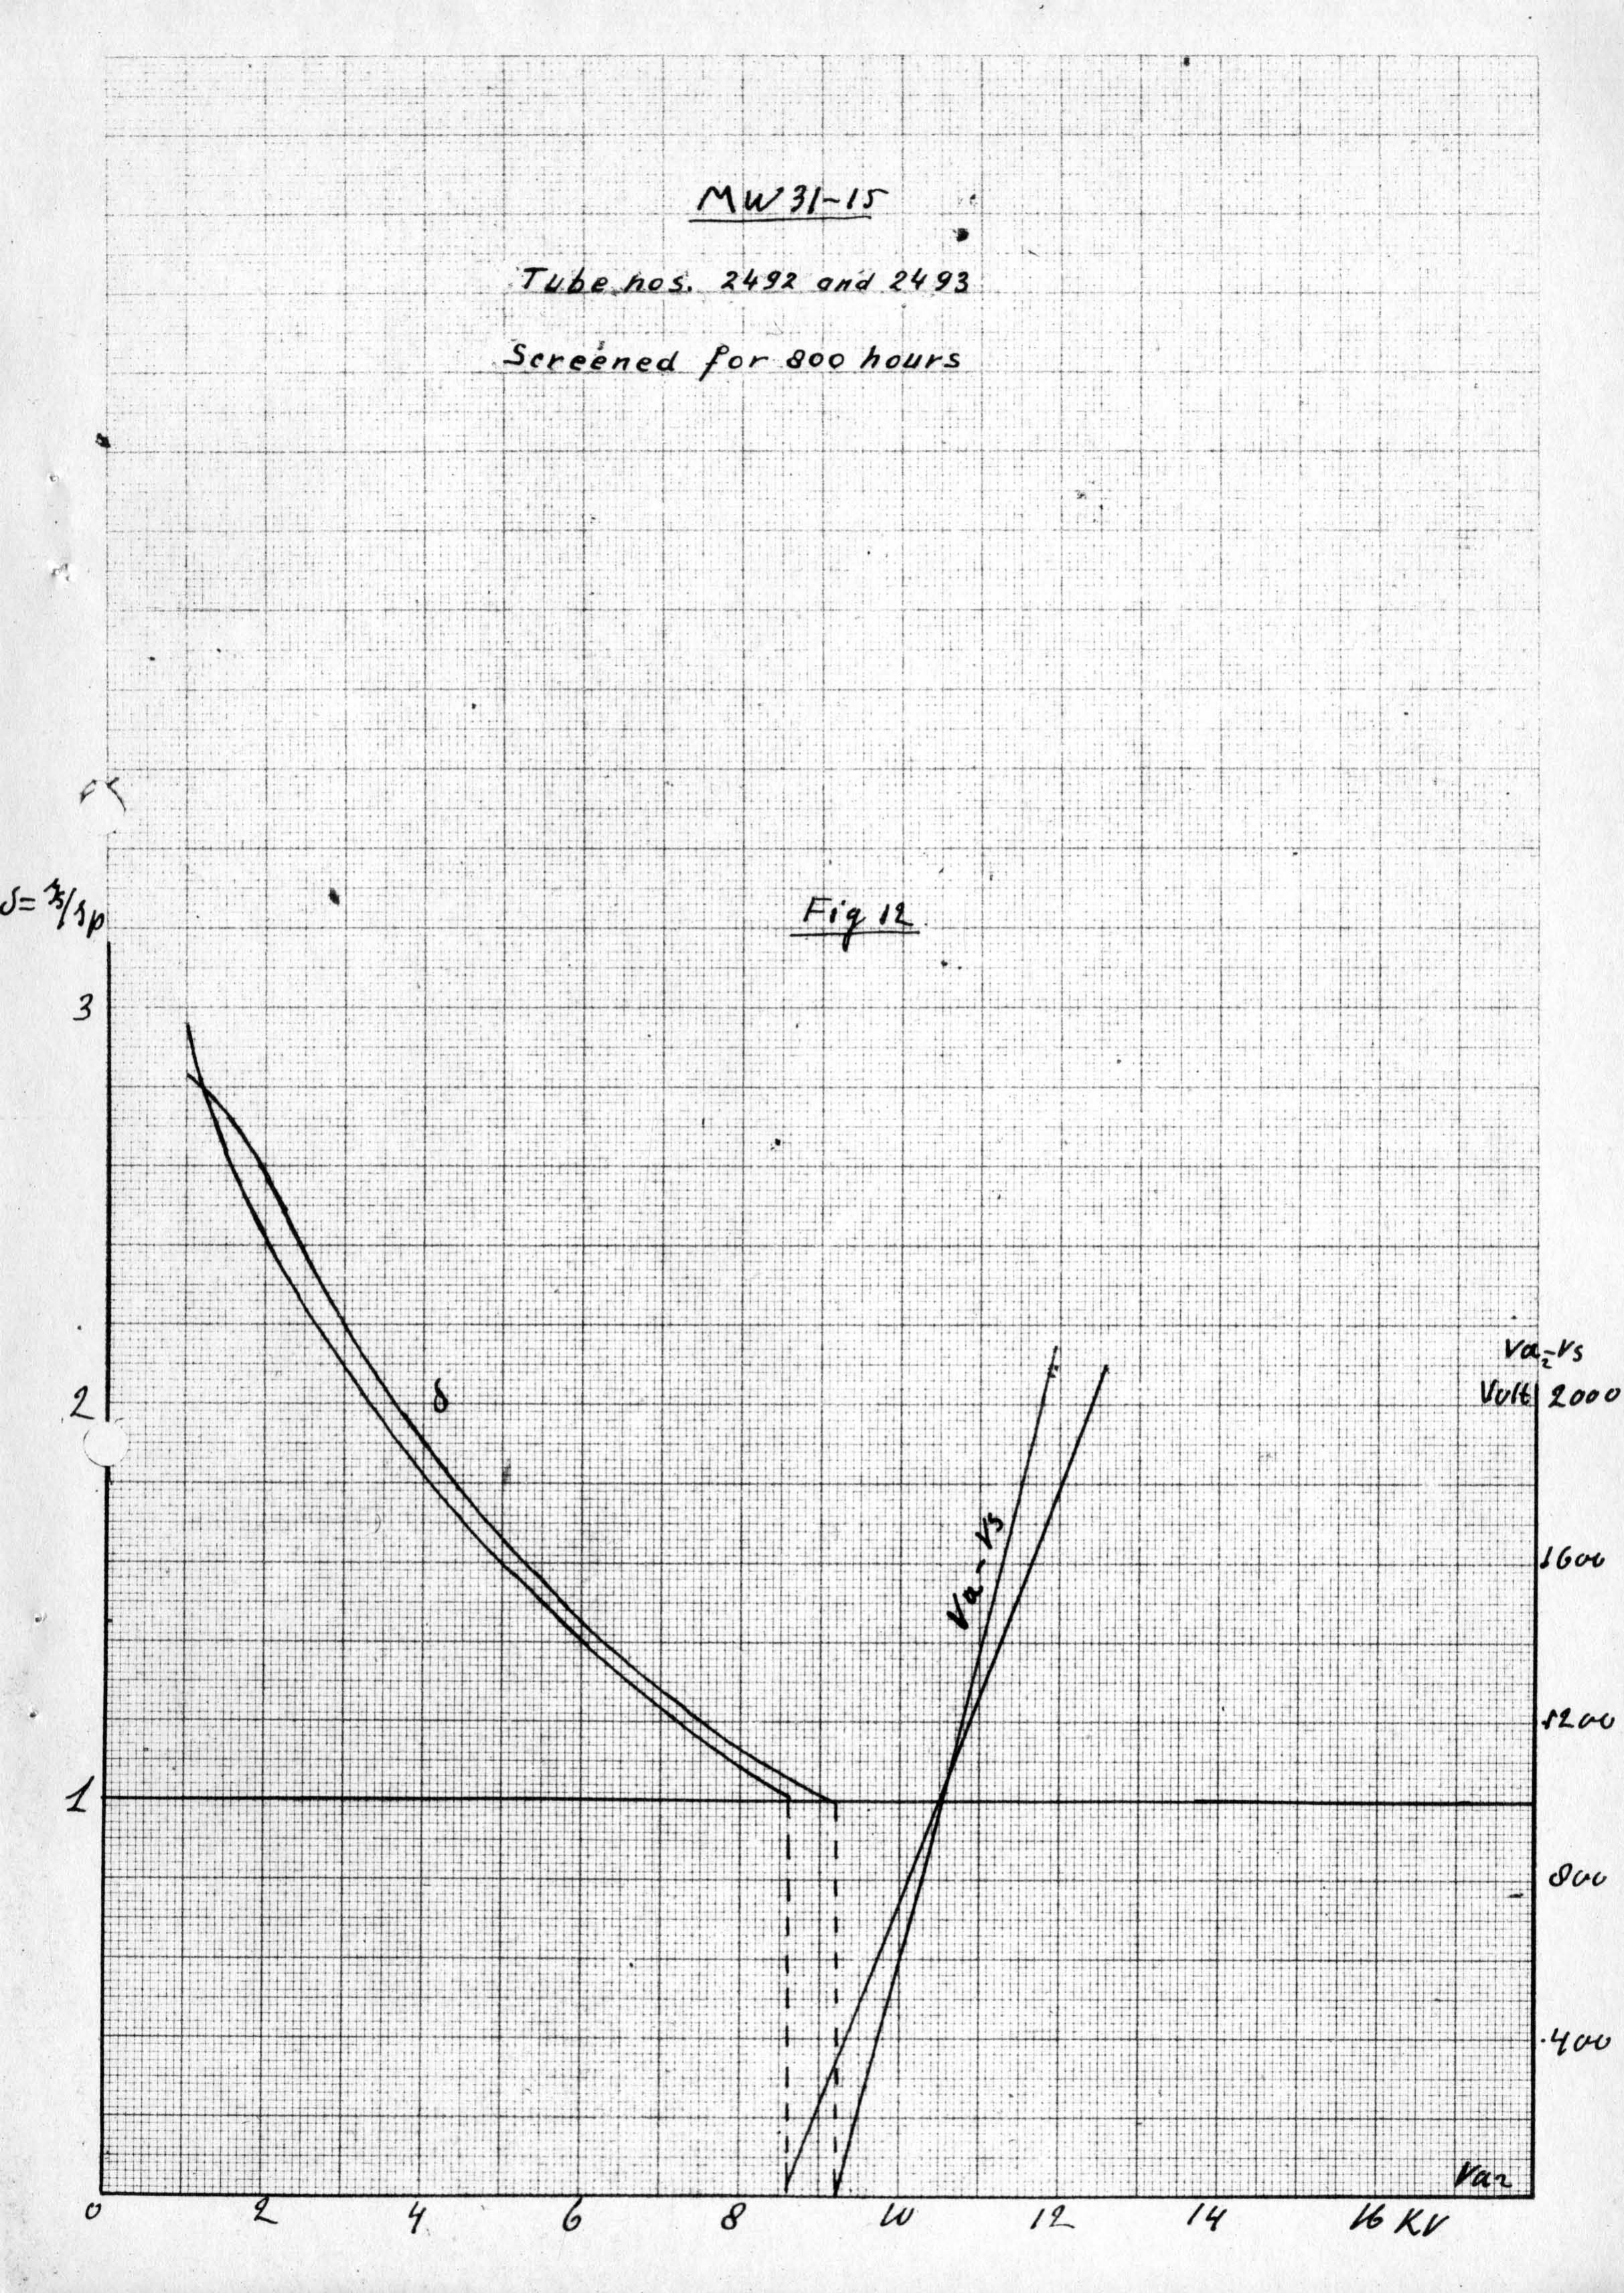 MW 31-15
Tube nos. 2492 and 2493
Screened for 800 hours
Fig 12
3
δ
2
Va₂-Vs
Volt 2000
Va-Vs
1600
1200
1
800
400
Va₂
0 2 4 6 8 10 12 14 16 KV